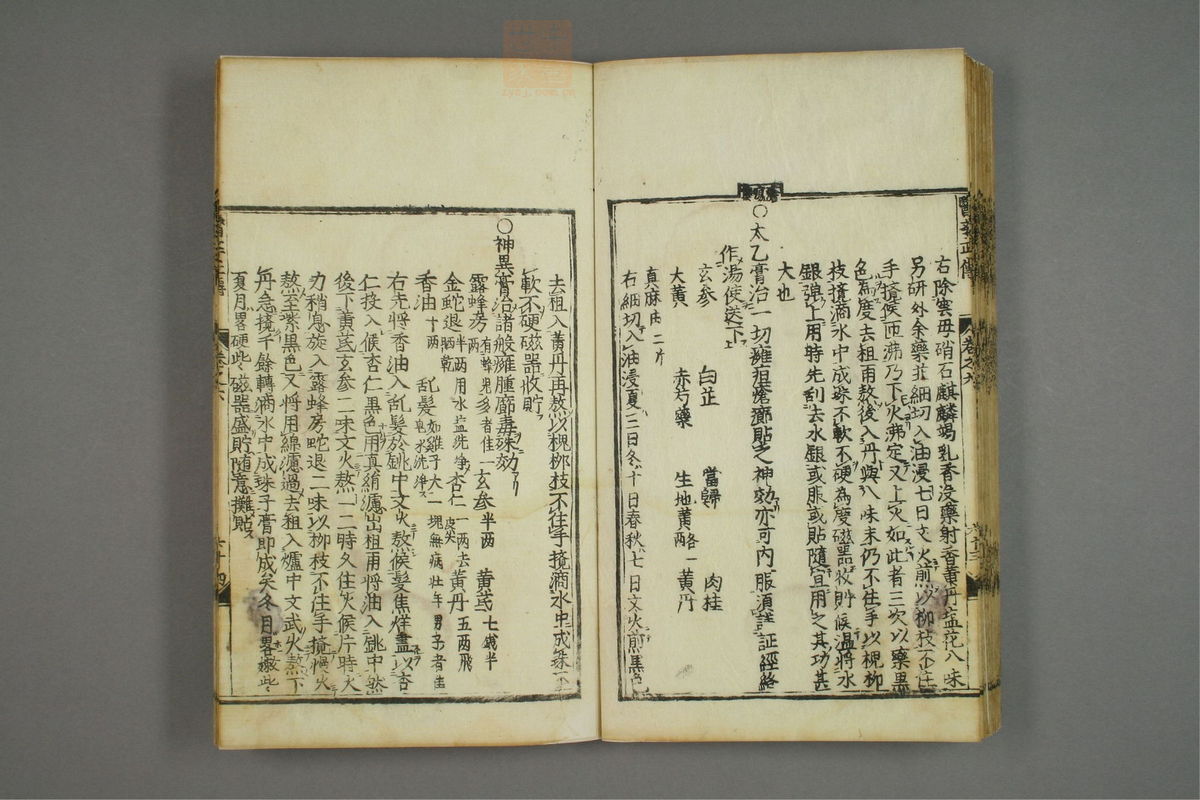 右除雲母硝石麒麟竭乳香没藥射香黄丹塩花八味
另研外余藥並細切入油浸七日文火煎以柳枝不住
手攪候匝沸乃下火沸定又上火如此者三次以藥黒
色為度去柤再熬後入丹與八味末仍不住手以槐柳
枝攪滴水中成珠不軟不硬為度磁器收貯候温將水
銀弾上用時先刮去水銀或服或貼隨宜用之其功甚
大也
○太乙膏治一切癰疽瘡癤貼之神効亦可内服須詳証經絡
作湯使送下
玄参 白芷 當歸 肉桂
大黄 赤芍藥 生地黄各一両 黄丹
真麻油二斤
右細切入油浸夏三日冬十日春秋七日文火煎黒色
去柤入黄丹再熬以槐柳枝不住手攪滴水中成珠不
軟不硬磁器收貯
○神異膏治諸般癰腫癤毒殊効
露蜂房一両有蜂児多者佳 玄参半両 黄芪七錢半
金蛇退半両用水塩洗净晒乾 杏仁一両去皮尖 黄丹五両飛
香油十両 乱髪如雞子大一塊無病壮年男子者佳皂水洗净
右先將香油入乱髪於銚中文火熬候髪焦烊盡以杏
仁投入候杏仁黒色用真絹濾出柤再將油入銚中然
後下黄芪玄参二味文火熬一二時久住火候片時火
力稍息旋入露蜂房蛇退二味以柳枝不住手攪慢火
熬至紫黒色又将用綿濾過去柤入爐中文武火熬下
丹急攪千餘轉滴水中成珠子膏即成矣冬月畧嫩些
夏月畧硬些磁器盛貯隨意攤貼